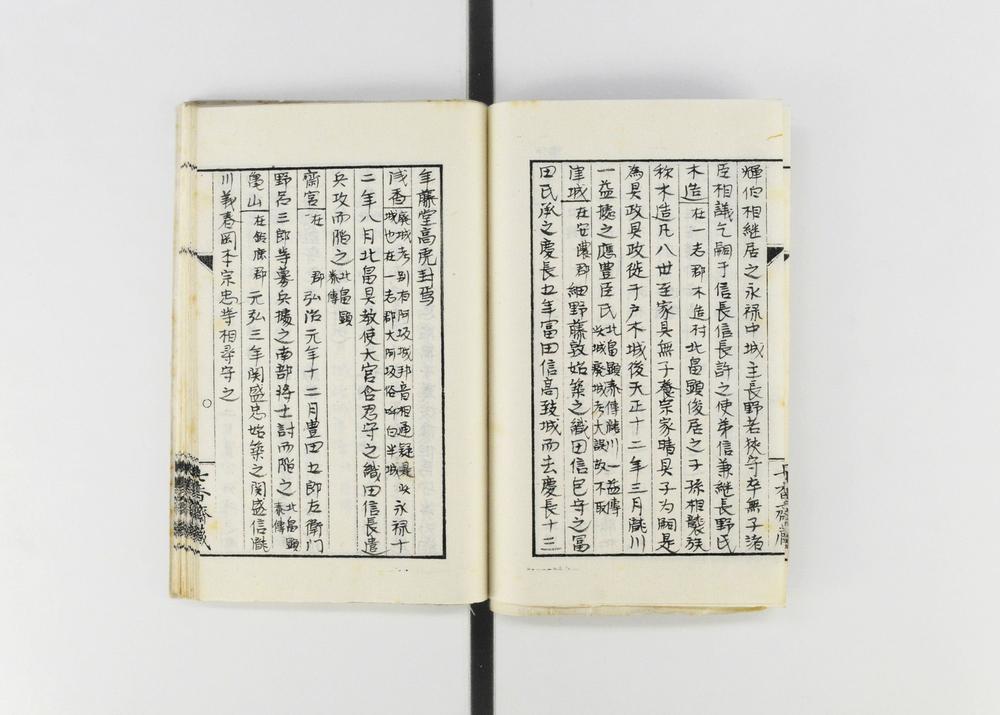 輝伯相継居之永禄中城主長野若狭守卒無子諸
臣相議乞嗣于信長信長許之使弟信兼継長野氏
木造 在一志郡木造村北畠顕俊居之子孫相襲族
称木造凡八世至家具無子養宗家晴具子为嗣是
為具政具政徙于戸木城後天正十二年三月瀧川
一益據之應豊臣氏 北畠顕泰傳瀧川一益傳
此城廢城考大誤故不取
津城 在安濃郡 細野藤敦始築之織田信包守之冨
田氏承之慶長五年冨田信高致城而去慶長十三
年藤堂高虎封焉
浅香 廢城考別有阿坂城邦音相通疑是此
城也在一志郡大阿坂俗呼白米城 永禄十
二年八月北畠具教使大宮含忍守之織田信長遣
兵攻而陥之 北畠顕
泰傳
齋宮 在 郡 弘治元年十二月豊田五郎左衛門
野呂三郎等募兵據之南部将士討而陥之 北畠顕
泰傳
亀山 在鈴鹿郡 元弘三年関盛忠始築之関盛信瀧
川義春岡本宗忠等相尋守之